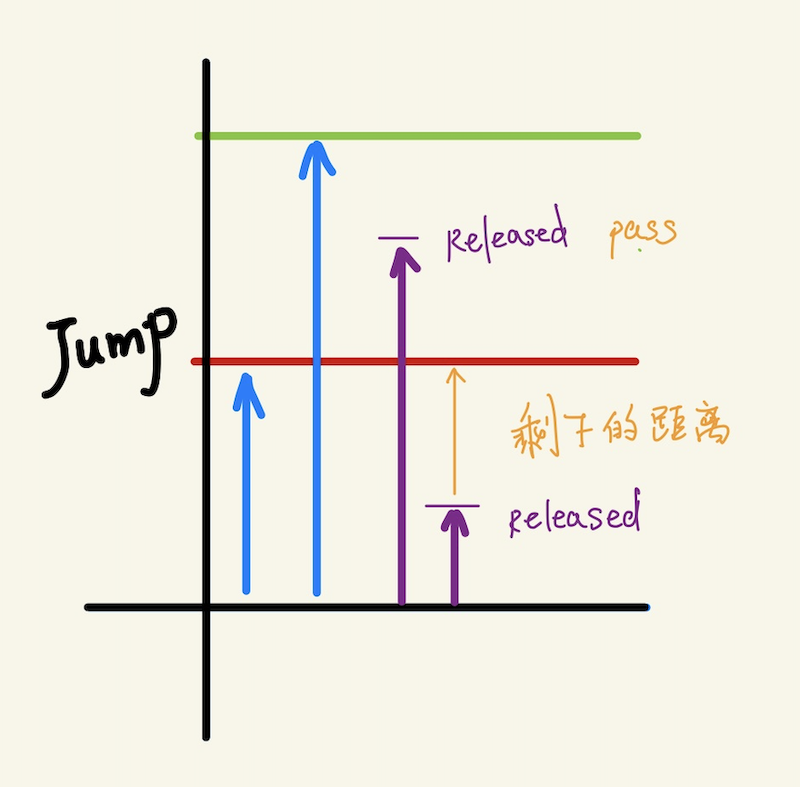 Released pass
Jump
剩下的距离
Released